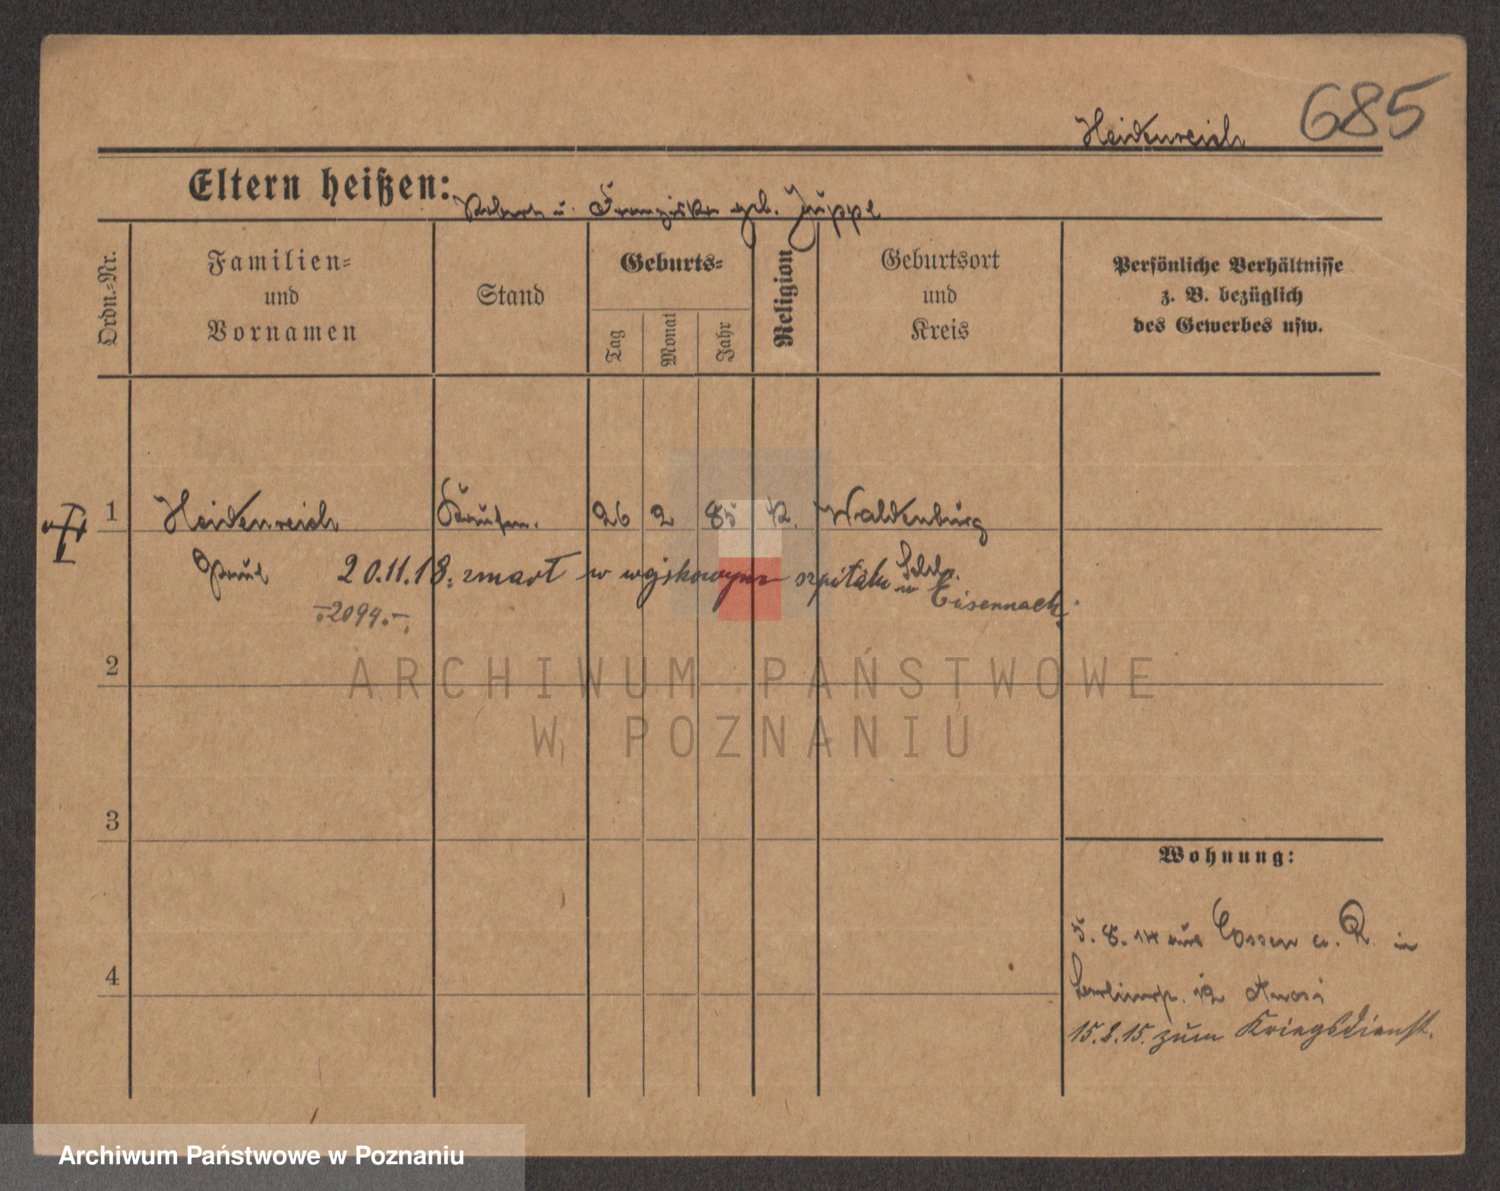 685
Heidenreich
Eltern heißen: Robert u. Franziska geb. Züppe
Ordn.-Nr.
Familien-
und
Vornamen
Stand
Geburts-
Tag
Monat
Jahr
Religion
Geburtsort
und
Kreis
Persönliche Verhältnisse
z. B. bezüglich
des Gewerbes usw.
1 Heidenreich Kaufm. 26 2 85 K. Waldenburg
Paul 20.11.18. zmarł w wojskowym szpitalu Schls.
w Eisennach.
2094.
2
3
4
Wohnung:
5. 8. 14 aus Essen a. R. in
12
15.2.15. zum Kriegsdienst.
ARCHIWUM PAŃSTWOWE
W POZNANIU
Archiwum Państwowe w Poznaniu